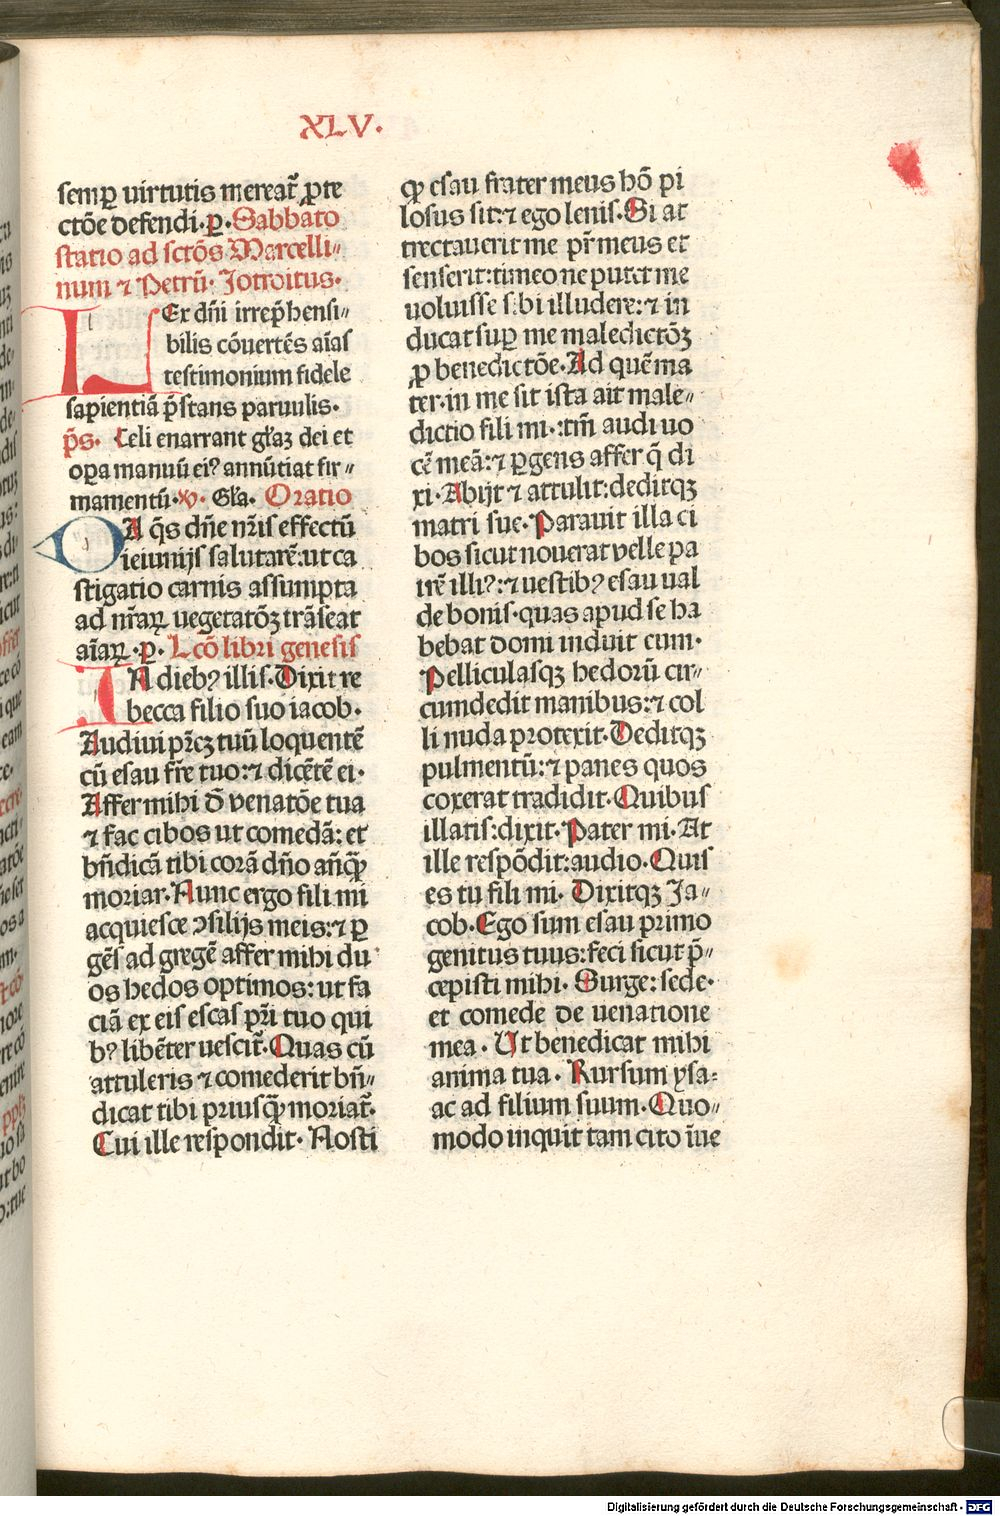 XLV.
semꝑ uirtutis mereat᷑ ꝓte
ctōe defendi.ꝑ.Sabbato
statio ad sctōs Marcelli〃
num ⁊ Petrū. Introitus.
LEx dn̄i irrep̄hensi-
bilis cōuertēs aīas
testimonium fidele
sapientiā p̄stans paruulis.
p̄s. Celi enarrant gl̓aꝫ dei et
oꝑa manuū eiꝰ annūtiat fir〃
mamentū.ꝟ. Gl̓a. Oratio
DA q̄s dn̄e nr̄is effectū
ieiunijs salutarē:ut ca
stigatio carnis assumpta
ad nr̄aꝝ uegetatōꝫ trāseat
aīaꝝ.ꝑ. Lcō libri genesis
IN diebꝰ illis.Dixit re
becca filio suo iacob.
Audiui pr̄eꝫ tuū loquentē
cū esau fr̄e tuo:⁊ dicētē ei.
Affer mihi d̄ venatōe tua
⁊ fac cibos ut comedā:et
bn̄dicā tibi corā dn̄o an̄qꝫ
moriar.Nunc ergo fili mi
acquiesce ꝯsilijs meis:⁊ ꝑ
gēs ad gregē affer mihi du
os hedos optimos:ut fa
ciā ex eis escas pr̄i tuo qui
bꝰ libēter uescit᷑.Quas cū
attuleris ⁊ comederit bn̄〃
dicat tibi priusqꝫ moriat᷑.
Cui ille respondit. Nosti
ꝙ esau frater meus hō pi
losus sit:⁊ ego lenis.Si at
trectauerit me pr̄ meus et
senserit:timeo ne putet me
uoluisse sibi illudere:⁊ in
ducat suꝑ me maledictōꝫ
ꝓ benedictōe.Ad quē ma
ter.in me sit ista ait male〃
dictio fili mi.:tm̄ audi uo
cē meā:⁊ ꝑgens affer q̄ di
xi.Abijt ⁊ attulit:deditqꝫ
matri sue.Parauit illa ci
bos sicut nouerat velle pa
trē illiꝰ:⁊ uestibꝰ esau ual
de bonis.quas apud se ha
bebat domi induit eum.
Pelliculasqꝫ hedorū cir〃
cumdedit manibus:⁊ col
li nuda protexit.Deditqꝫ
pulmentū:⁊ panes quos
coxerat tradidit.Quibus
illatis:dixit.Pater mi.At
ille respōdit:audio.Quis
es tu fili mi. Dixitqꝫ Ja〃
cob.Ego sum esau primo
genitus tuus:feci sicut p̄-
cepisti mihi. Surge:sede.
et comede de uenatione
mea. Ut benedicat mihi
anima tua. Rursum ysa-
ac ad filium suum.Quo〃
modo inquit tam cito īue
Digitalisierung gefördert durch die Deutsche Forschungsgemeinschaft - DFG